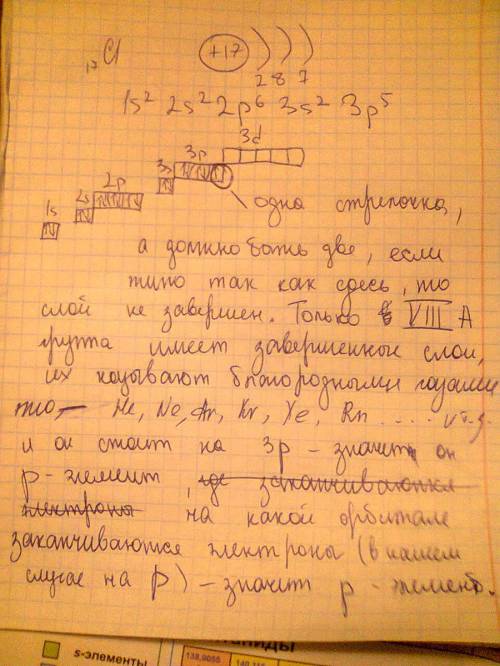 17Cl +17 ) ) )
2 8 7
1s² 2s² 2p⁶ 3s² 3p⁵
3d
3p
3s
2p
2s
1s
одна стрелочка,
а должно быть две, если
типо так как сдесь, то
слой не завершен. Только VIII A
группа имеет завершенные слои,
их называют благородными газами
это — He, Ne, Ar, Kr, Xe, Rn .... и т.д.
и он стоит на 3p – значит он
p-элемент, где заканчиваются
электроны на какой орбитале
заканчиваются электроны (в нашем
случае на p) – значит p-элемент.
s-элементы
138,9055